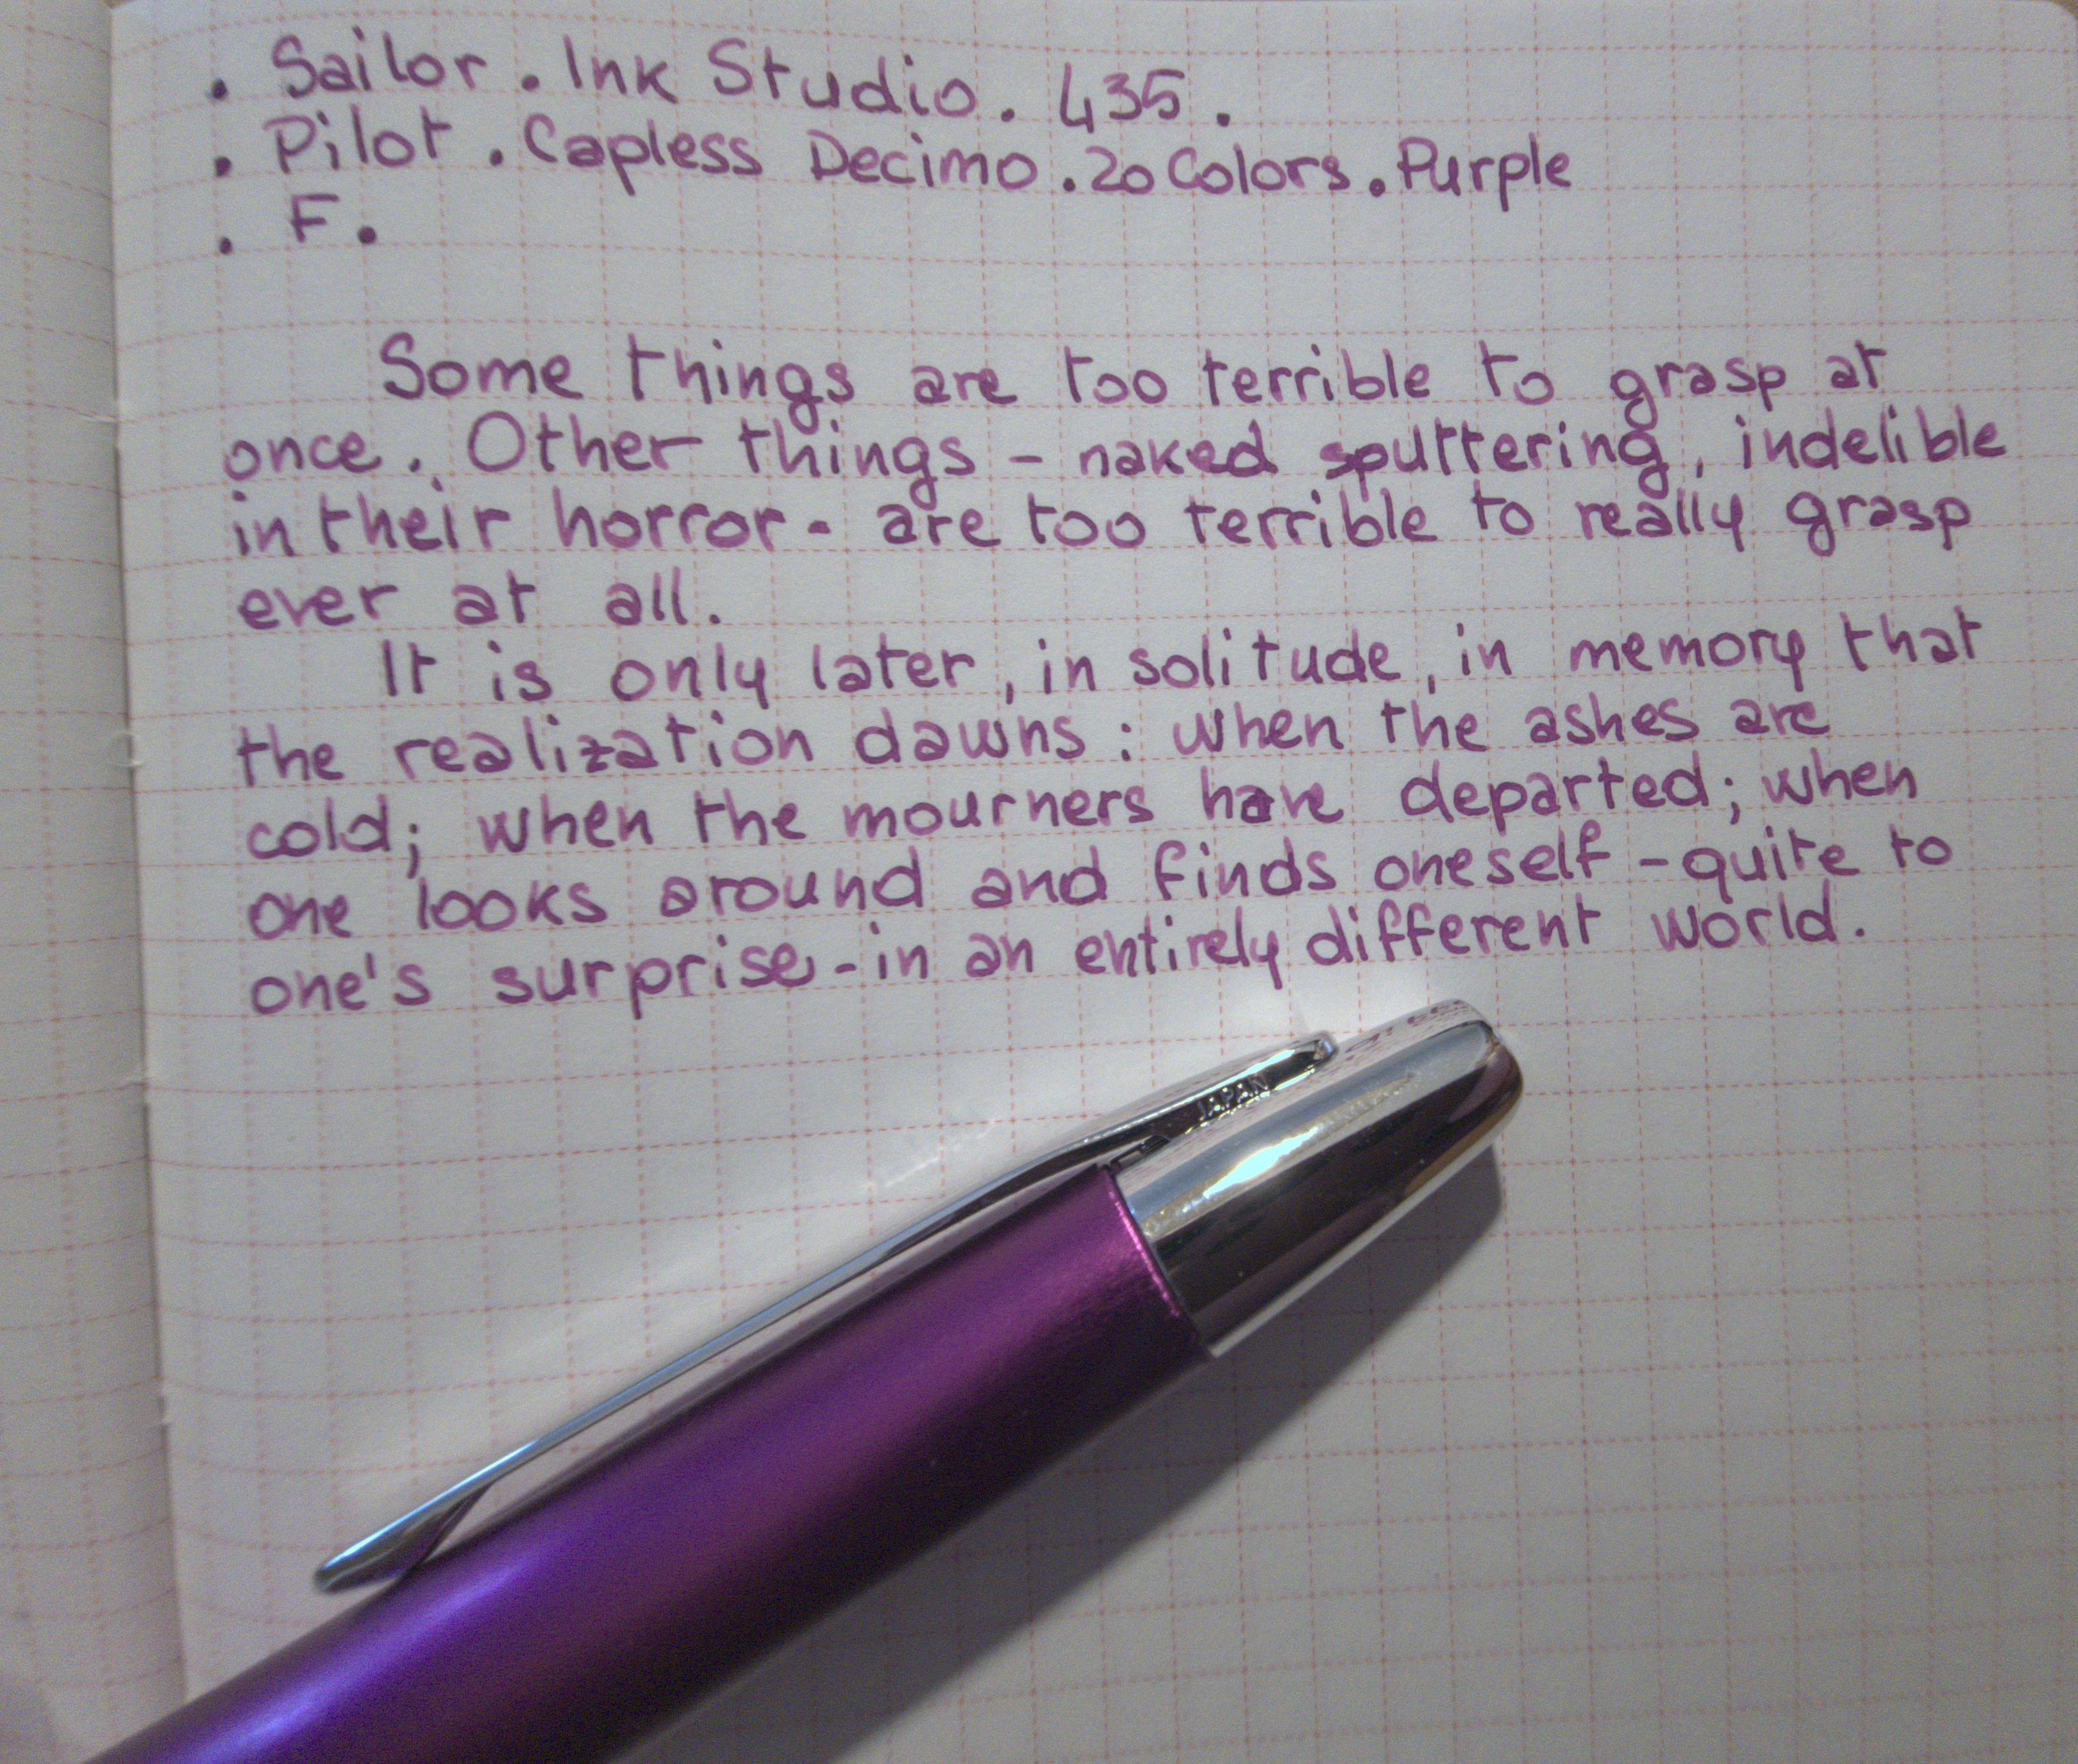 . Sailor . Ink Studio . 435 .
. Pilot . Capless Decimo . 20 Colors . Purple
. F .
Some things are too terrible to grasp at
once. Other things - naked sputtering, indelible
in their horror - are too terrible to really grasp
ever at all.
It is only later, in solitude, in memory that
the realization dawns : when the ashes are
cold; when the mourners have departed; when
one looks around and finds oneself - quite to
one's surprise - in an entirely different world.
JAPAN